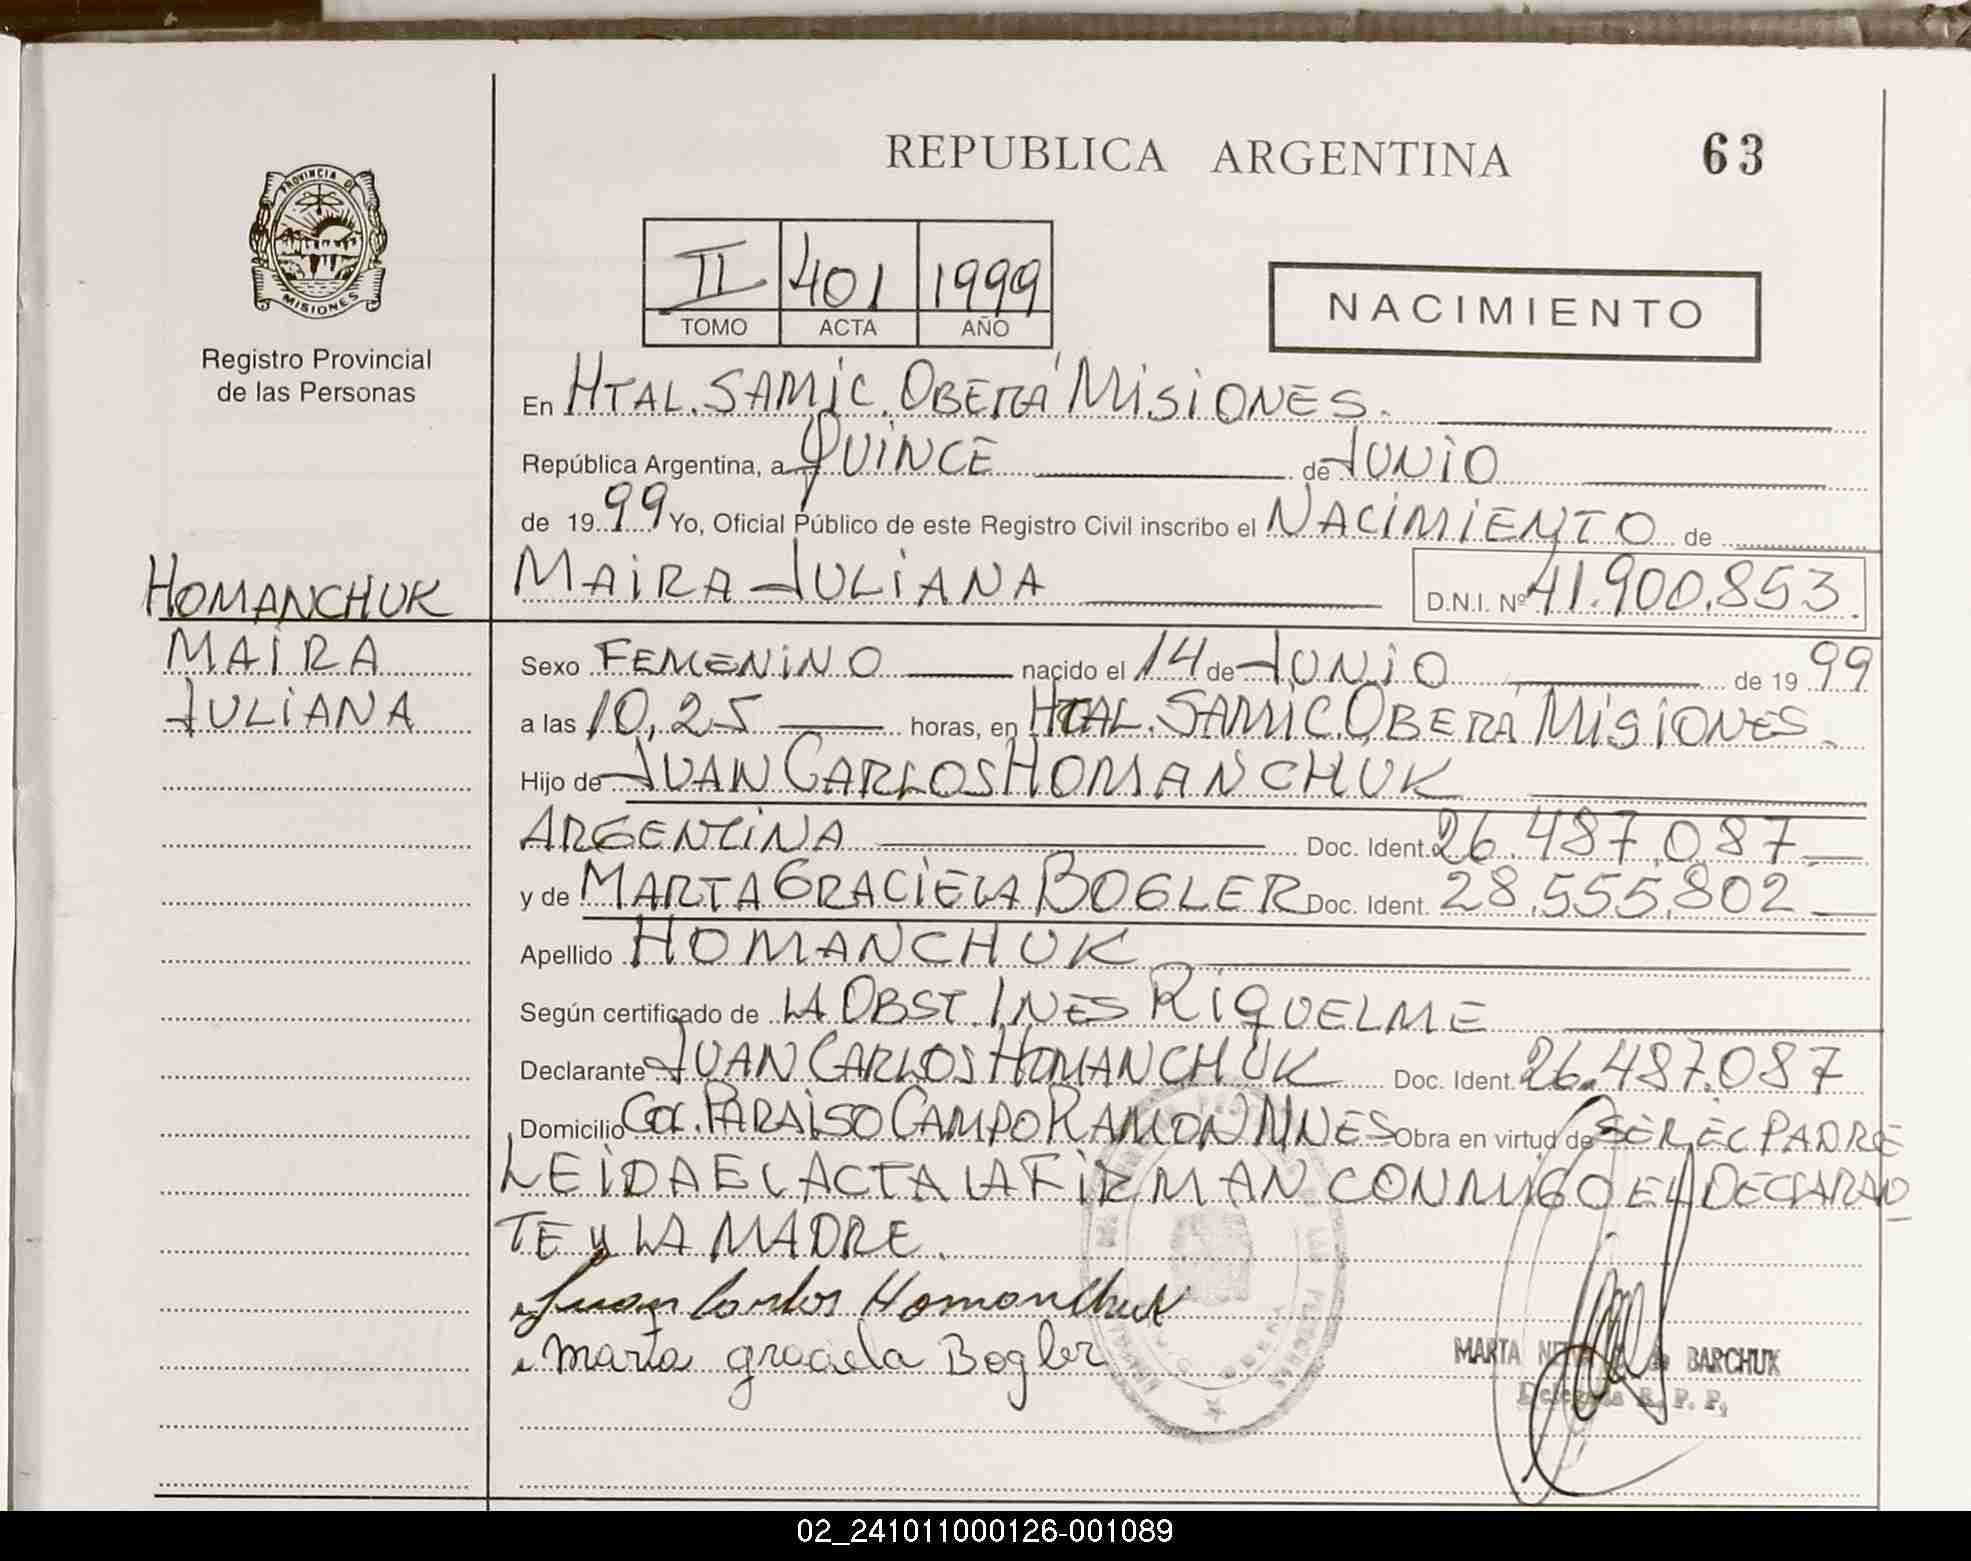 REPUBLICA ARGENTINA 63
PROVINCIA DE
MISIONES
Registro Provincial
de las Personas
II 401 1999
TOMO ACTA AÑO
NACIMIENTO
En HTAL. SAMIC. OBERÁ MISIONES.
República Argentina, a QUINCE de JUNIO
de 1999 Yo, Oficial Público de este Registro Civil inscribo el NACIMIENTO de
HOMANCHUK
MAIRA JULIANA D.N.I. Nº 41.900.853.
MAIRA
JULIANA
Sexo FEMENINO nacido el 14 de JUNIO de 1999
a las 10,25 horas, en HTAL. SAMIC. OBERA MISIONES.
Hijo de JUAN CARLOS HOMANCHUK
ARGENTINA Doc. Ident. 26.487.087
y de MARTA GRACIELA BOGLER Doc. Ident. 28.555.802
Apellido HOMANCHUK
Según certificado de LA OBST. INES RIQUELME
Declarante JUAN CARLOS HOMANCHUK Doc. Ident. 26.487.087
Domicilio Col. PARAISO CAMPO RAMON MNES Obra en virtud de SER EL PADRE
LEIDA EL ACTA LA FIRMAN CONMIGO EL DECLARAN
TE y LA MADRE.
Juan Carlos Homanchuk
marta graciela Bogler
MARTA de BARCHUK
Delegada R. P. P.
02_241011000126-001089